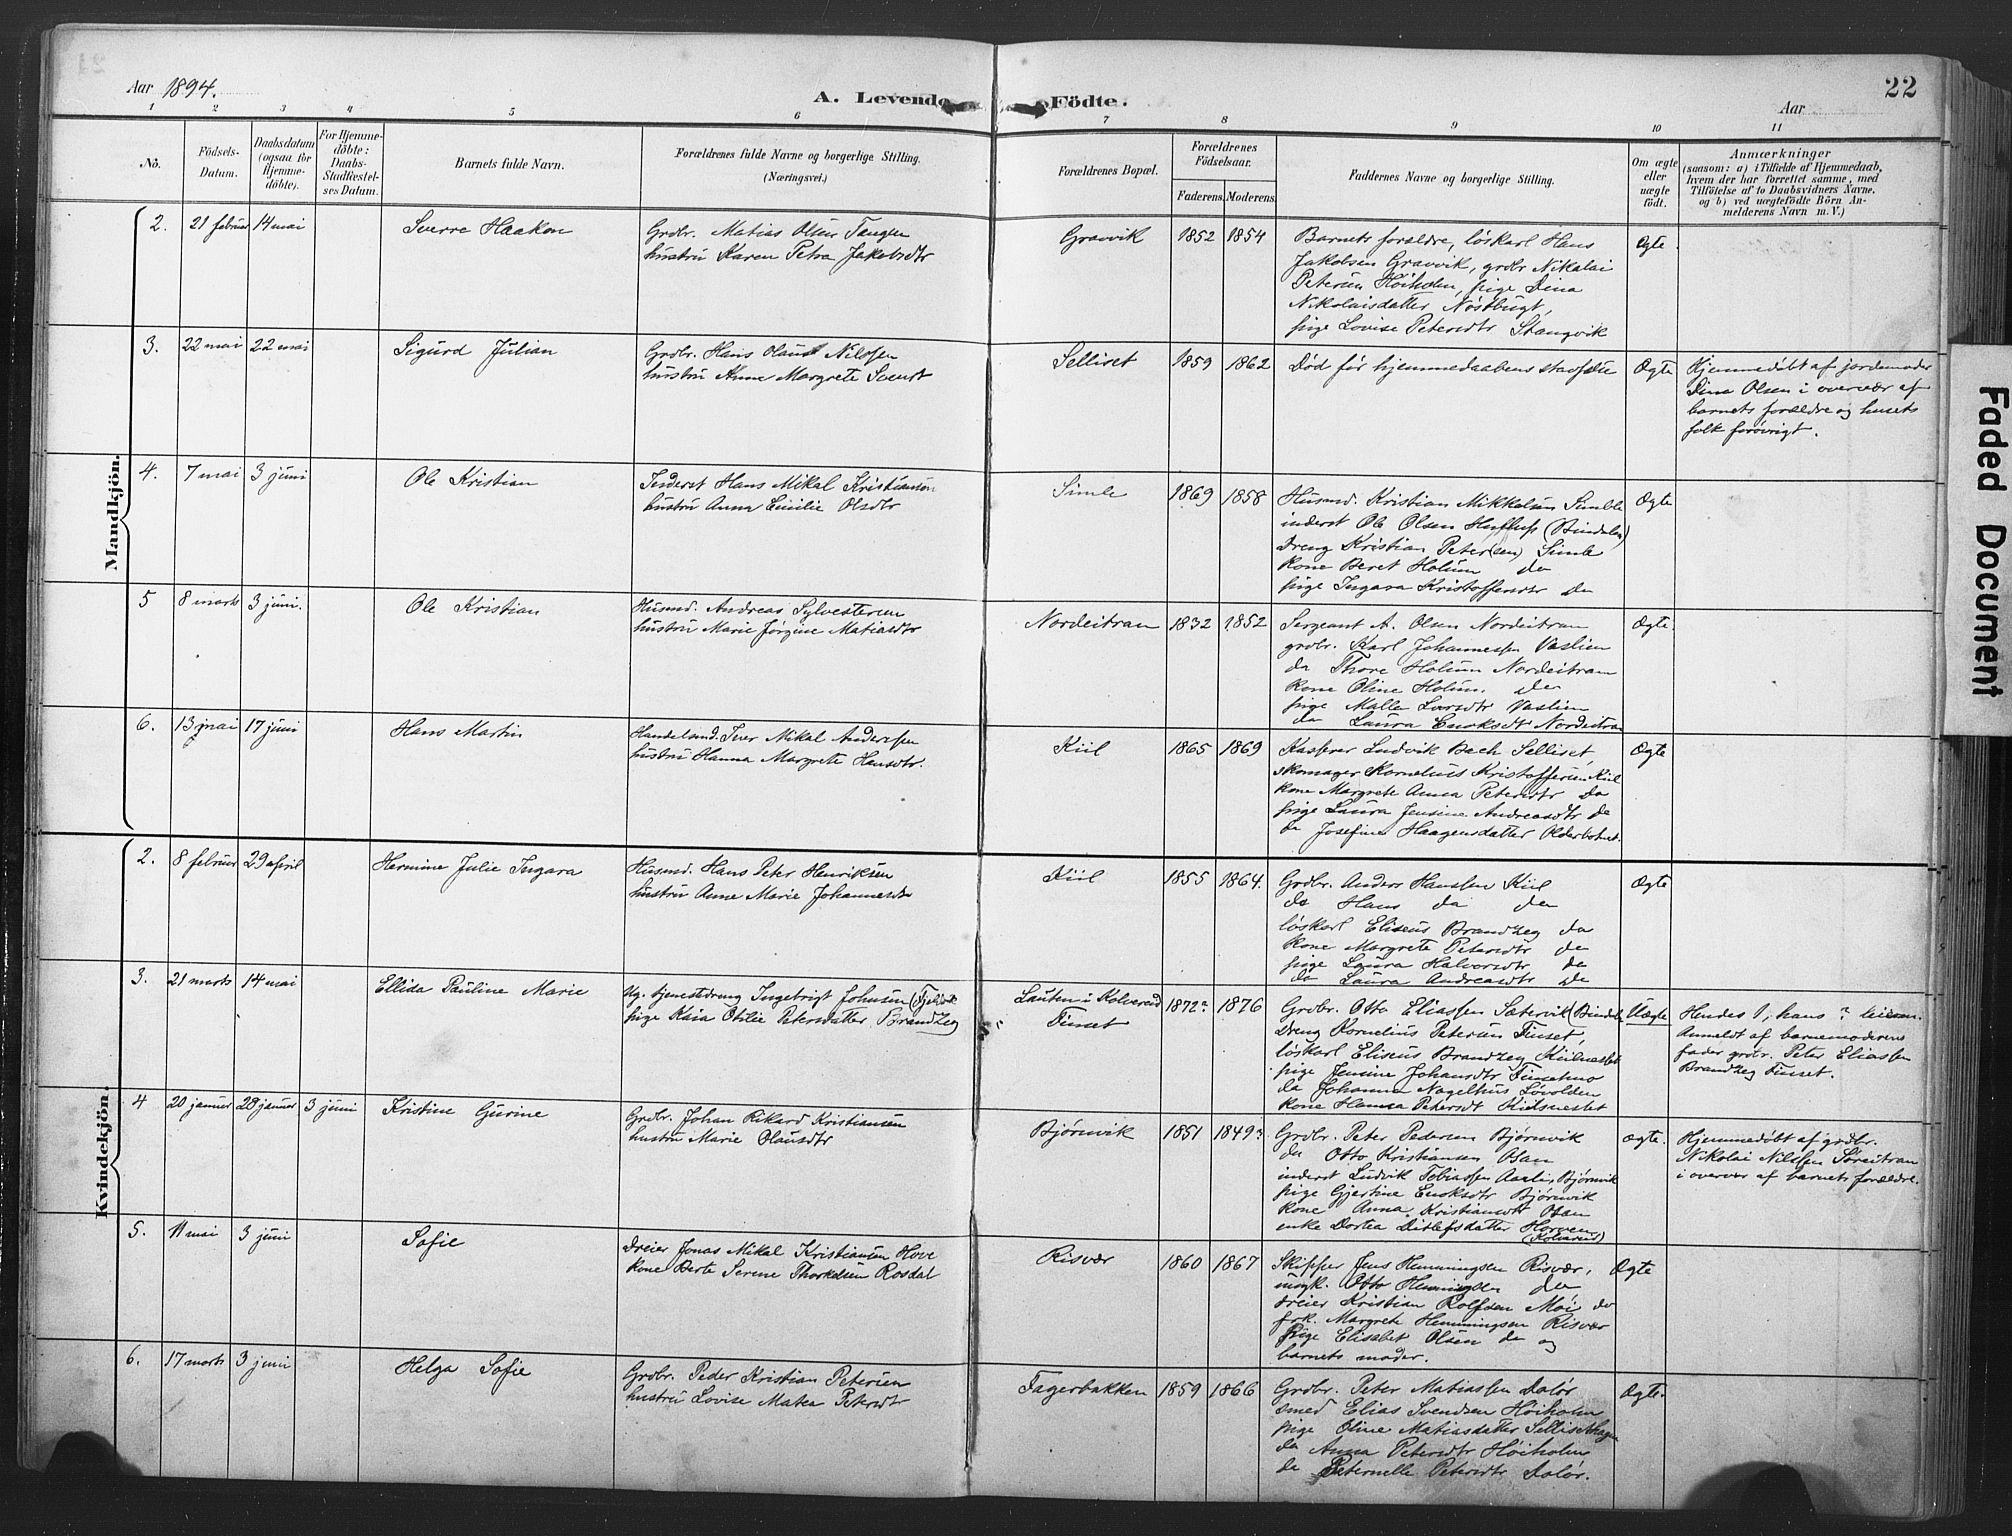 Aar 1894.
A. Levende Födte.
Aar
22
1 2 3 4 5 6 7 8 9 10 11
No.
Födsels-Datum.
Daabsdatum (ogsaa for Hjemmedöbte).
For Hjemmedöbte: Daabs-Stadfæstelses Datum.
Barnets fulde Navn.
Forældrenes fulde Navne og borgerlige Stilling.
(Næringsvei.)
Forældrenes Bopæl.
Forældrenes Födselsaar.
Faderens. Moderens.
Faddernes Navne og borgerlige Stilling.
Om ægte eller uægte födt.
Anmærkninger
(saasom: a) i Tilfælde af Hjemmedaab, hvem der har forrettet samme, med Tilföielse af to Daabsvidners Navne, og b) ved uægtefödte Börn Anmelderens Navn m. V.)
Mandkjön.
2. 21 februar 14 mai Sverre Haakon
Grdbr. Matias Olsen Tangen
hustru Karen Petra Jakobsdtr
Gravvik 1852 1854
Barnets forældre, løskarl Hans
Jakobsen Gravvik, grdbr Nikolai
Petersen Høiholm, pige Dina
Nikolaisdatter Nøstbugt,
pige Lovise Petersdtr Stangvik
Ægte.
3. 22 mai 22 mai Sigurd Julian
Grdbr. Hans Olaus Nilssen
hustru Anne Margrete
Selliset 1859 1862
Død før hjemmedaabens stadfæ
Ægte
Hjemmedøbt af jordemoder
Dina Olsen i overvær af
barnets forældre og husets
folk forøvrigt.
4. 7 mai 3 juni Ole Kristian
Inderst Hans Mikal Kristiansen
hustru Anna Emilie Olsdtr
Simle 1869 1858
Husmd. Kristian Mikkelsen Simle
inderst Ole Olsen (Bindalen)
Dreng Kristian Peter(sen) Simle
kone Beret Holum do
pige Ingara Kristoffersdtr do
Ægte
5 8 marts 3 juni. Ole Kristian
Husmd. Andreas Sylvestersen
hustru Marie Jørgine Matiasdtr
Nordeitran 1832 1852
Sergeant A. Olsen Nordeitran
grdbr. Karl Johannessen Vaslien
do Thore Holum Nordeitran
kone Oline Holum. do
pige Malla Larsdtr Vaslien
do Laura Enoksdtr Nordeitran
Ægte.
6. 13 mai 17 juni Hans Martin
Handelsmd. Iver Mikal Anderssen
hustru Hanna Margrete Hansdtr.
Kiil 1865 1869
Kasserer Ludvik Bach Selliset,
skomager Kornelius Kristoffersen Kiil
kone Margrete Anna Petersdtr do
pige Laura Jensine Andreasdtr do
do Josefine Haagensdatter Olderbotnet.
Ægte
Kvindekjön.
2. 8 februar 29 april Hermine Julie Ingara
Husmd. Hans Peter Henriksen
hustru Anne Marie Johannesdtr
Kiil 1855 1864.
Grdbr. Anders Hanssen Kiil
do Hans do do
løskarl Eliseus Brandzeg do
kone Margrete Petersdtr do
pige Laura Halvorsdtr do
do Laura Andreasdtr do
Ægte
3. 21 marts 14 mai Ellida Pauline Marie
Ug. tjenestedreng Ingebrigt Johnsen
pige Kaia Otilie Petersdatter Brandzeg
Lauten i Kolvereid
Finset 1872? 1876
Grdbr. Otto Eliassen Sætervik (Bindalen)
Dreng Kornelius Petersen Finset,
løskarl Eliseus Brandzeg Kiilnesset
pige Jensine Johansdtr Finsetmo
do Johanna Nagelhus Løvolden
kone Hansa Petersdt Kiilsnesset
Uægte
Hendes 1, hans ?
Anmeldt af barnemoderens
fader grdbr. Peter Eliassen
Brandzeg Finset.
4 20 januar 28 januar 3 juni Kristine Gurine
Grdbr. Johan Rikard Kristiansen
hustru Marie Olausdtr
Bjørnvik 1851 1849?
Grdbr. Peter Pedersen Bjørnvik
do Otto Kristiansen Osan
inderst Ludvik Tobiassen Bjørnvik
pige Gjertine Enoksdtr Bjørnvik
kone Anna Kristiansdt Osan
enke Dortea Ditlefsdatter Horven
(Kolvereid)
Ægte.
Hjemmedøbt af grdbr.
Nikolai Nilssen Søreitran
i overvær af barnets forældre.
5. 11 mai 3 juni Sofie
Dreier Jonas Mikal Kristiansen Hove
kone Berte Serene Thorkelsen Rosdal
Risvær 1860 1867
Skipper Jens Hemmingsen Risvær,
ungk. Otto Hemmingsen do
Dreier Kristian Rolfsen Moi do
frk. Margrete Hemmingsen Risvær
pige Elisabet Olsen do og
barnets moder.
Ægte
6. 17 marts 3 juni Helga Sofie
Grdbr. Peder Kristian Petersen
hustru Lovise Matea Petersdt
Fagerbakken 1859 1866
Grdbr. Peter Matiassen Dalør
smed Elias Svendsen Høiholm
pige Oline Matiasdatter Sellisethagen
do Anna Petersdtr Høiholm
do Peternelle Petersdtr Dalør.
Ægte.
Faded Document